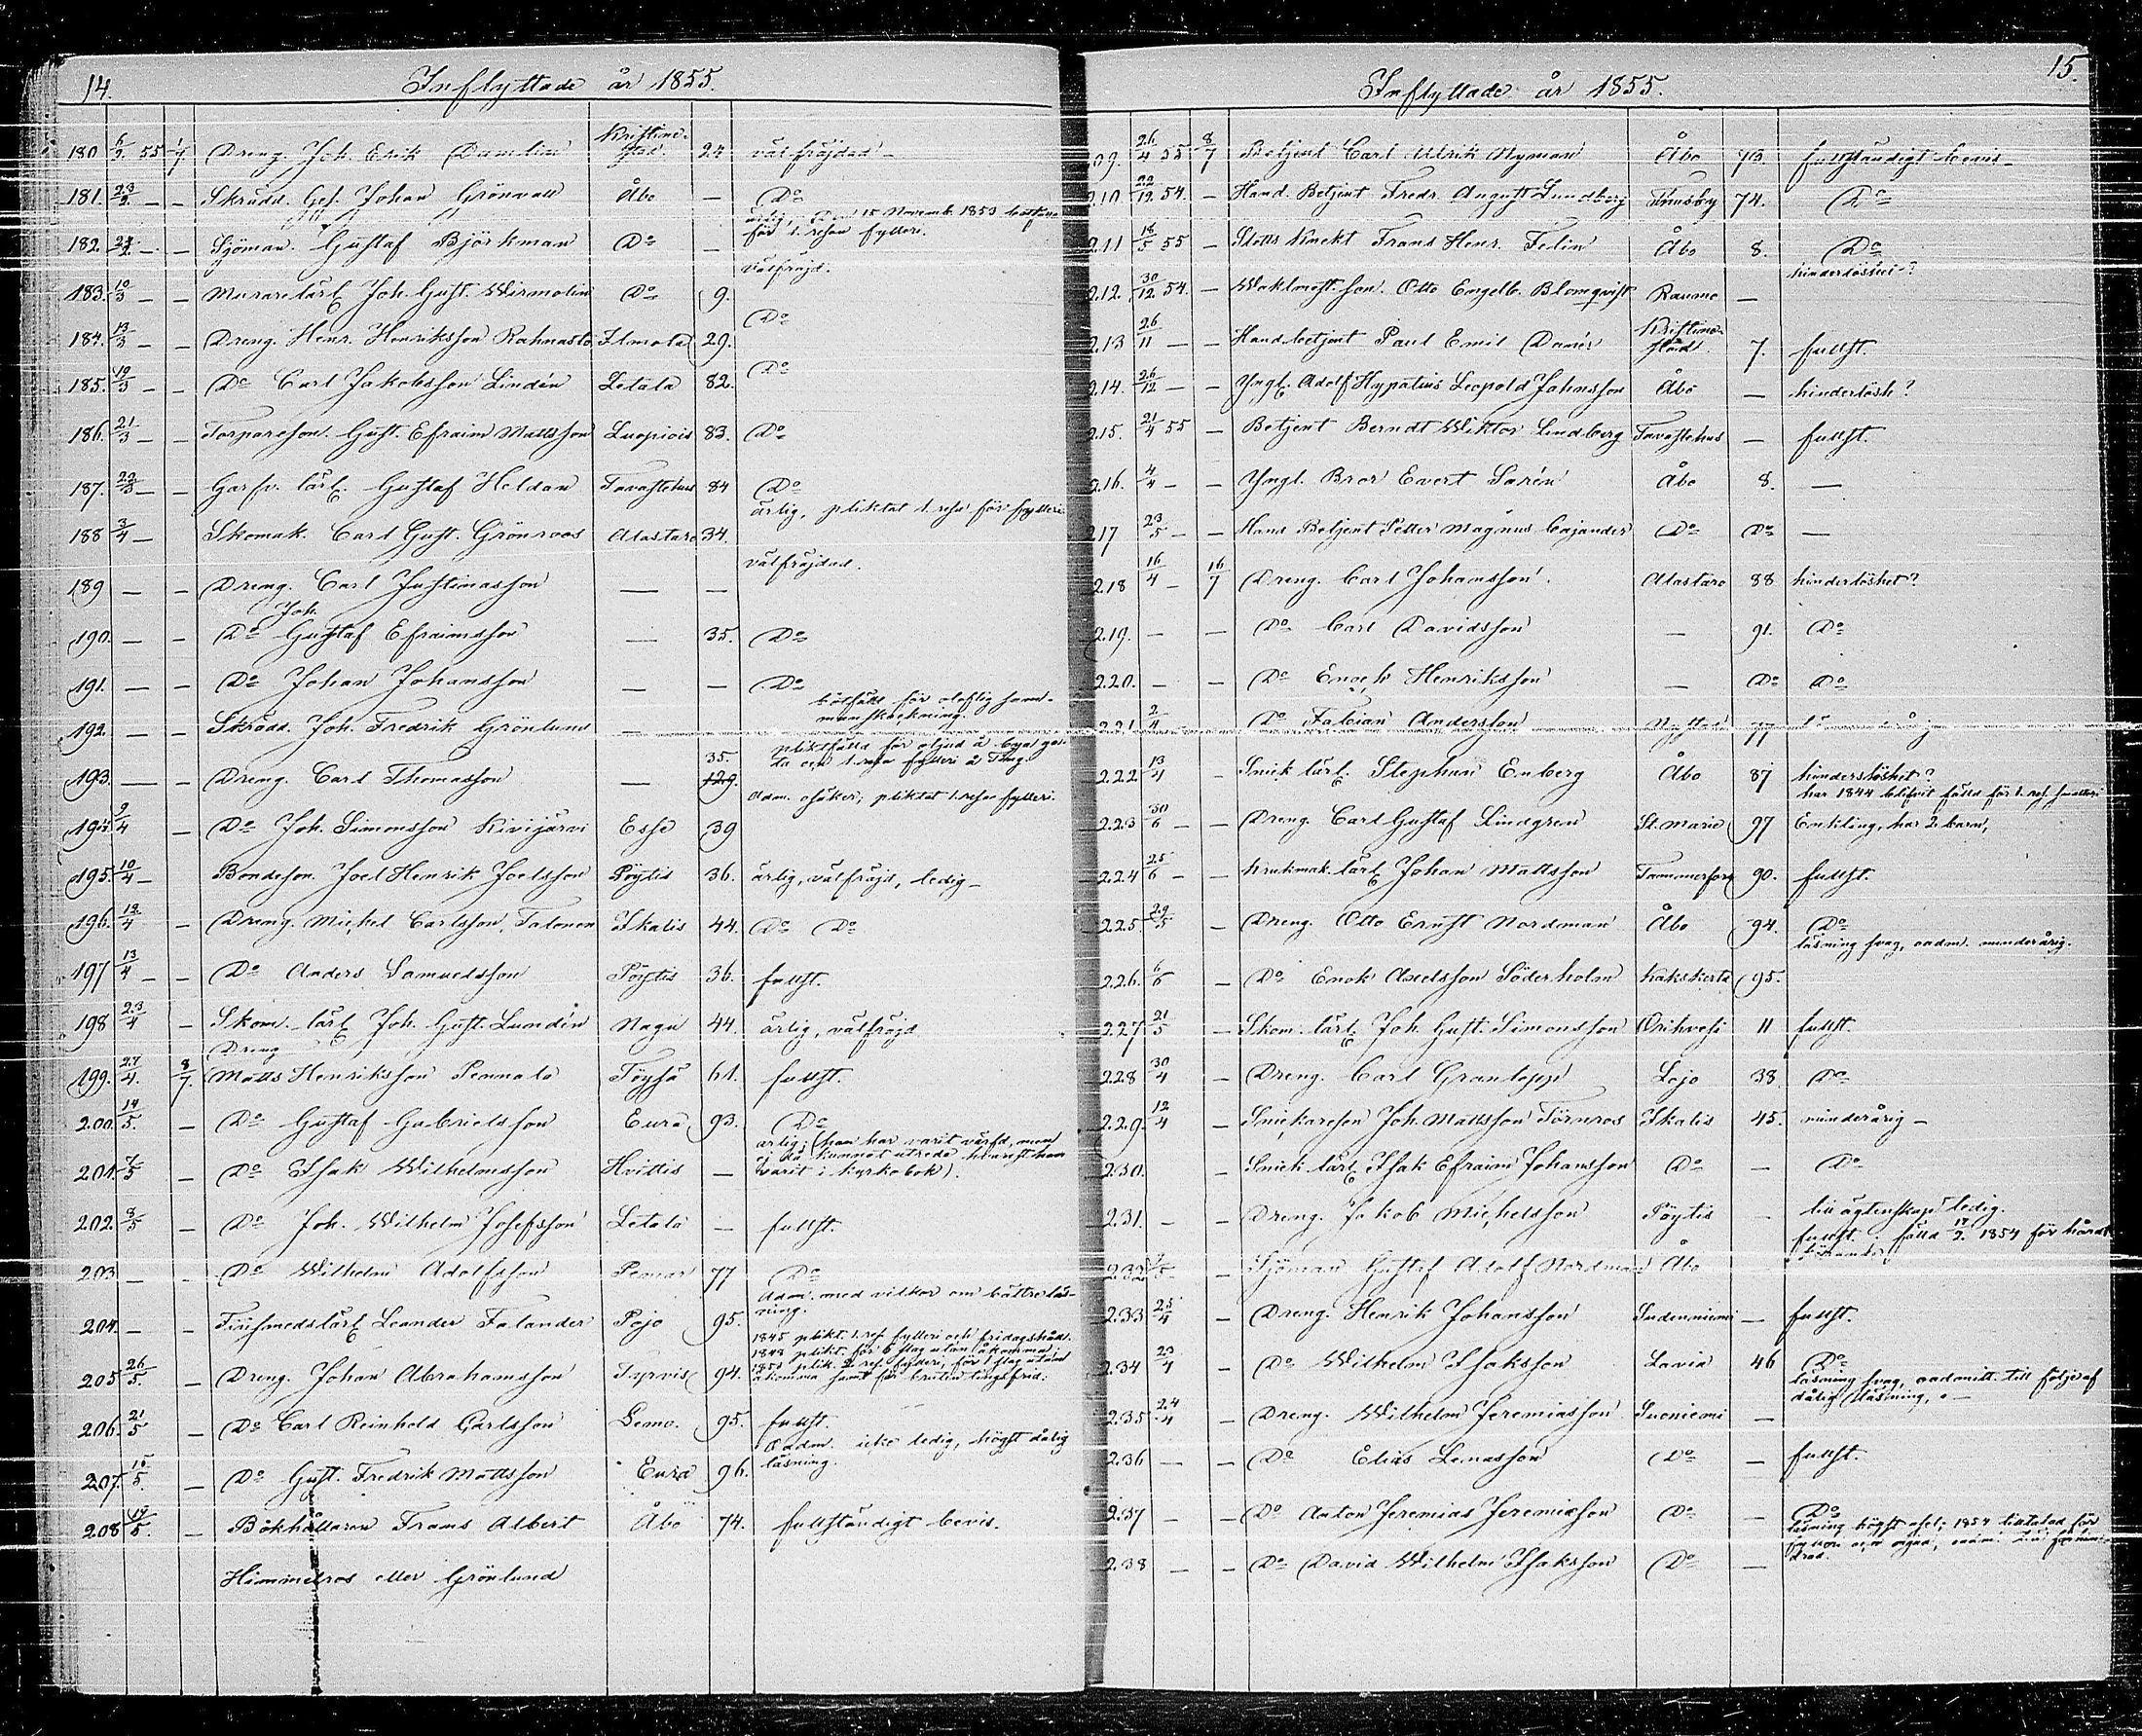 14.
Inflyttade år 1855.
180 6/2 55 1/7. Dreng. Joh. Erik Kristine- stad. 24 välfräjdad –
181. 23/2 – – Skrädd. Ges. Johan Grönvall Åbo – Do
182. 24/2 – – Sjöman. Gustaf Björkman Do – ärlig, den 15 Novemb. 1853
för 1. resan fylleri.
183. 10/3 – – Murarelärl. Joh. Gust. Do 9. välfräjd.
184. 13/3 – – Dreng. Henr. Henriksson Ilmola 29. Do
185. 19/3 – – Do Carl Jakobsson Lindén Letala 82. Do
186. 21/3 – – Torpareson. Gust. Efraim Mattsson Luopiois 83. Do
187. 22/3 – – Garfv. lärl. Gustaf Heldan Tavastehus 84 Do
188 3/4 – Skomak. Carl Gust. Grönroos Alastaro 34. ärlig, pliktat 1. resa för fylleri
189 – – Dreng. Carl Justinasson – – välfräjdad.
Joh.
190. – – Do Gustaf Efraimsson – 35. Do
191. – – Do Johan Johansson – – Do
192. – – Skrädd. Joh. Fredrik Grönlund – bötfäld för oloflig
35. pliktfälld för oljud å bya
193. – – Dreng. Carl Thomasson – 129. och 1. resa fylleri å Ting.
194. 9/4 – Do Joh. Simonsson Kivijärvi Esse 39 adm. osäker; pliktat 1. resa fylleri.
195. 10/4 – Bondeson. Joel Henrik Joelsson Pöytis 36. ärlig, välfräjd, ledig –
196. 12/4 – Dreng. Michel Carlsson, Talonen Ikalis 44. Do Do
197 13/4 – – Do Anders Samuelsson Pöytis 36. fullst.
198 23/4 – Skom. lärl. Joh. Gust. Lundén Nagu 44. ärlig, välfräjd
Dreng
199. 27/4. 8/7. Matts Henriksson Pennala Töysä 61. fullst.
200. 14/5. – Do Gustaf Gabrielsson Eura 93. Do
201. 7/5 – Do Isak Wilhelmsson Hvittis – ärlig; (han har varit men
ej då kunnat utreda hvarest han
varit i kyrkobok).
202. 8/5 – Do Joh. Wilhelm Josefsson Letala – fullst.
203 – – Do Wilhelm Adolfsson Pemar 77 Do
204. – – lärl. Leander Falander Pojo 95. Adm. med vilkor om bättre läs-
ning.
205 26/5. – Dreng. Johan Abrahamsson Tyrvis 94. 1845 plikt. 1. res. fylleri och
1848 plikt. för 6 slag utan åkomma,
1851 plik. 2 res. fylleri, för 1 slag utan
åkomma samt för bruten tingsfrid.
206. 21/5 – Do Carl Reinhold Carlsson Lemo. 95. fullst.
207. 15/5. – Do Gust. Fredrik Mattsson Eura 96. Oadm. icke ledig, högst dålig
läsning.
208 19/5. – Bokhållaren Frans Albert Åbo 74. fullständigt bevis.
Himmelros eller Grönlund
15.
Inflyttade år 1855.
209. 26/4 55 8/7 Betjent Carl Ulrik Nyman Åbo 73. fullständigt bevis –
210 22/12 54. – Hand. Betjent Fredr. August Lundberg 74. Do
211 18/5 55 – Slotts Knekt Frans Henr. Felin Åbo 8. Do
212. 30/12 54. – Waktmest. son. Otto Engelb. Blomqvist Raumo – hinderlöshet?
213 26/11 – – Hand. betjent Paul Emil Danér Kristine- stad. 7. fullst.
214. 26/12 – – Yngl. Adolf Hypatius Leopold Johnsson Åbo – hinderlösh?
215. 21/4 55 – Betjent Berndt Wiktor Lindberg Tavastehus – fullst.
216. 4/4 – – Yngl. Bror Evert Sarén Åbo 8. –
217 23/5 – – Hand Betjent Petter Magnus Cajander Do Do –
218 16/4 – 16/7 Dreng. Carl Johansson. Alastaro 88 hinderlöshet?
219. – – Do Carl Davidsson – 91. Do
220. – – Do Enoch Henriksson – Do Do
221 2/4 Do Fabian Andersson 77
222 13/4 – Snick. lärl. Stephan Enberg Åbo 87 hinderslöshet?
223 30/6 – – Dreng. Carl Gustaf Lindgren St. Marie 97 har 1844 blifvit fälld för 1. res.
Enkling, har 2 barn,
224 25/6 – – Krukmak. lärl. Johan Mattsson Tammerfors 90. fullst.
225 29/5 – Dreng. Otto Ernst Nordman Åbo 94. Do
226. 6/6 – Do Enok Axelsson Söderholm Kakskerta 95. läsning svag, oadm. minderårig.
227 21/5 – Skom. lärl. Joh. Gust. Simonsson Orihvesi 11 fullst.
228 30/4 – Dreng. Carl Lojo 38. Do
229. 12/4 – Snickareson Joh. Mattsson Törnros Ikalis 45. minderårig –
230. – Snick. lärl. Isak Efraim Johansson Do – Do
231. – – Dreng. Jakob Michelsson Pöytis – till ägtenskap ledig.
232 7/5 – Sjöman Gustaf Adolf Nordman Åbo fullst. fälld 17/2 1854 för
233 25/4 – Dreng. Henrik Johansson Sudenniemi – fullst.
234 23/4 – Do Wilhelm Isaksson Lavia 46 Do
235 24/4 – Dreng. Wilhelm Jeremiasson Suoniemi – läsning svag, oadmitt. till följe af
dålig läsning. –
236 – – Do Elias Lenasson Do – fullst.
237 – – Do Anton Jeremias Jeremiasson Do – Do
238 – – Do David Wilhelm Isaksson Do – läsning högst usel; 1854 för